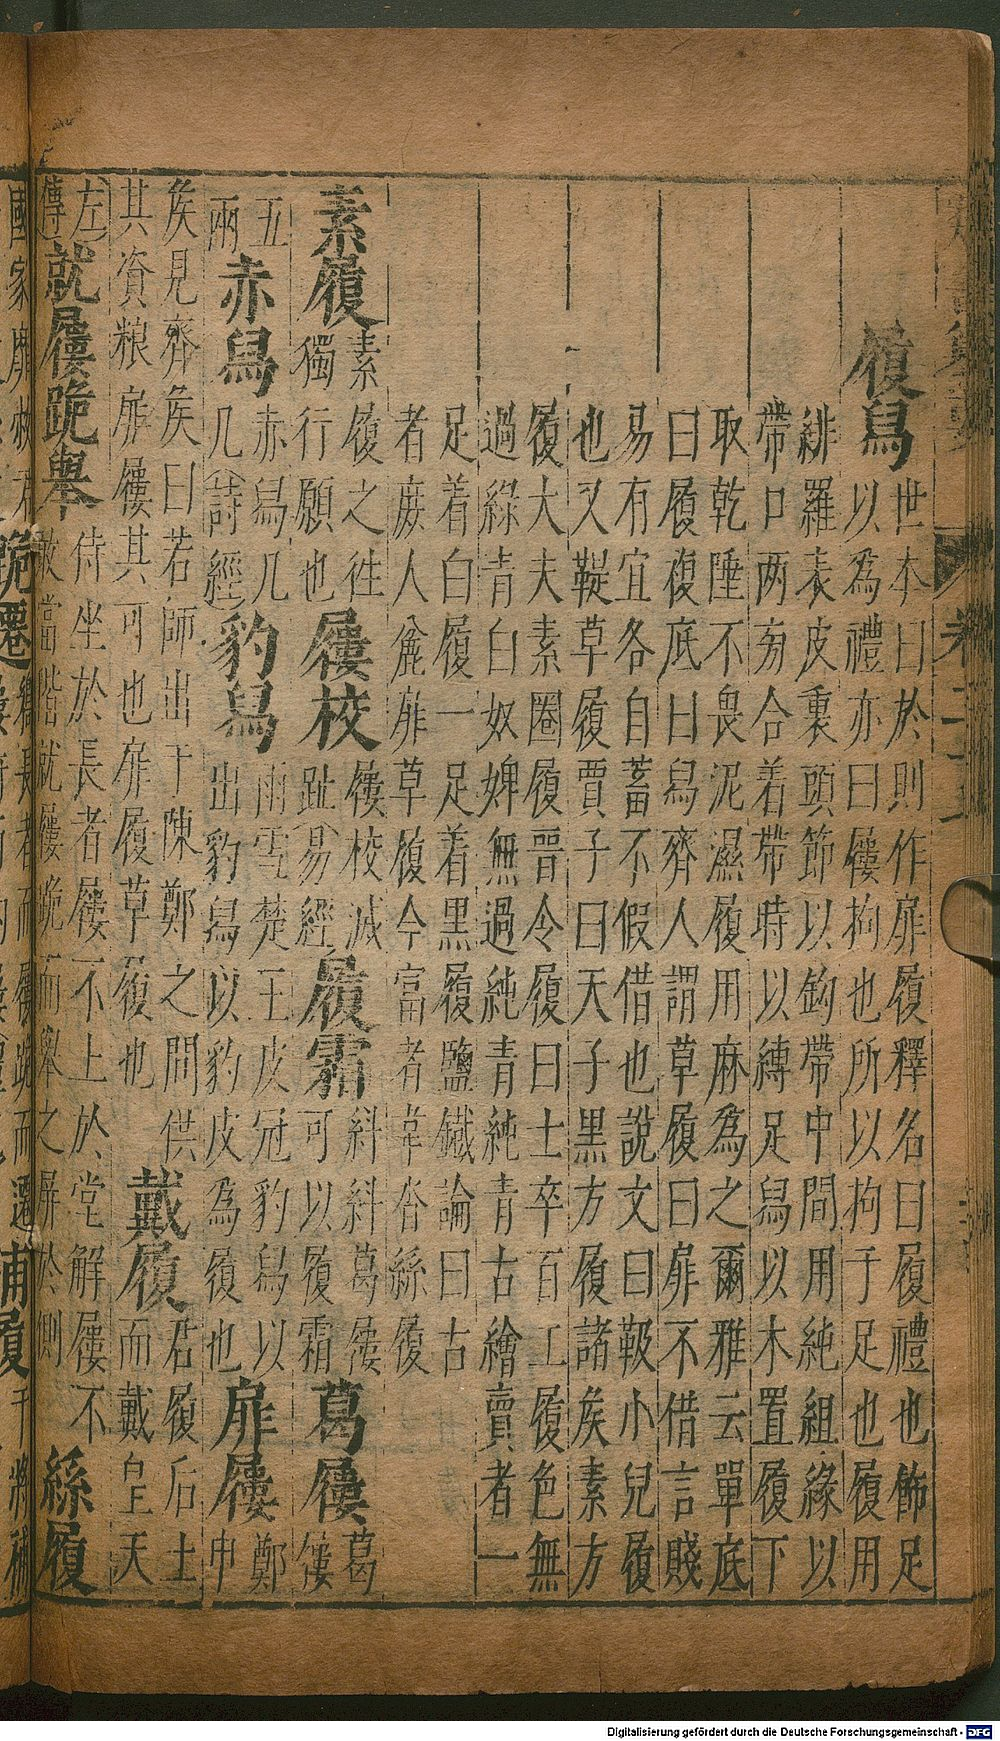 履舄
世本曰於則作屝履釋名曰履禮也飾足
以為禮亦曰屨拘也所以拘于足也履用
緋羅表皮裏頭節以鈎帶中間用純組緣以
帶口两旁合着帶時以縛足舄以木置履下
取乾陲不畏泥濕履用麻為之爾雅云單底
曰履複底曰舄齊人謂草履曰屝不借言賤
易有宜各自蓄不假借也說文曰靸小兒履
也又鞮草履賈子曰天子黑方履諸矦素方
履大夫素圈履晋令履曰士卒百工履色無
過綠青白奴婢無過純青純青古繪賣者一
足着白履一足着黑履鹽鐵論曰古
者庻人麄屝草履今富者韋沓絲履
素履
素履之徃
獨行願也
屨校
屨校滅
趾(易經)
履霜
糾糾葛屨
可以履霜
葛屨
葛
屨
五
兩
赤舄
赤舄几
几(詩經)
豹舄
雨雪楚王皮冠豹舄以
出豹舄以豹皮為履也
屝屨
鄭
申
矦見齊矦曰若師出于陳鄭之間供
其資粮屝屨其可也屝履草履也
戴履
君履后土
而戴皇天
(左
傳)
就屨跪舉
侍坐於長者屨不上於堂解屨不
敢當階就屨跪而舉之屏於側
絲履
國家靡敝君
跪遷
屨跪而遷
補履
干將補
Digitalisierung gefördert durch die Deutsche Forschungsgemeinschaft - DFG